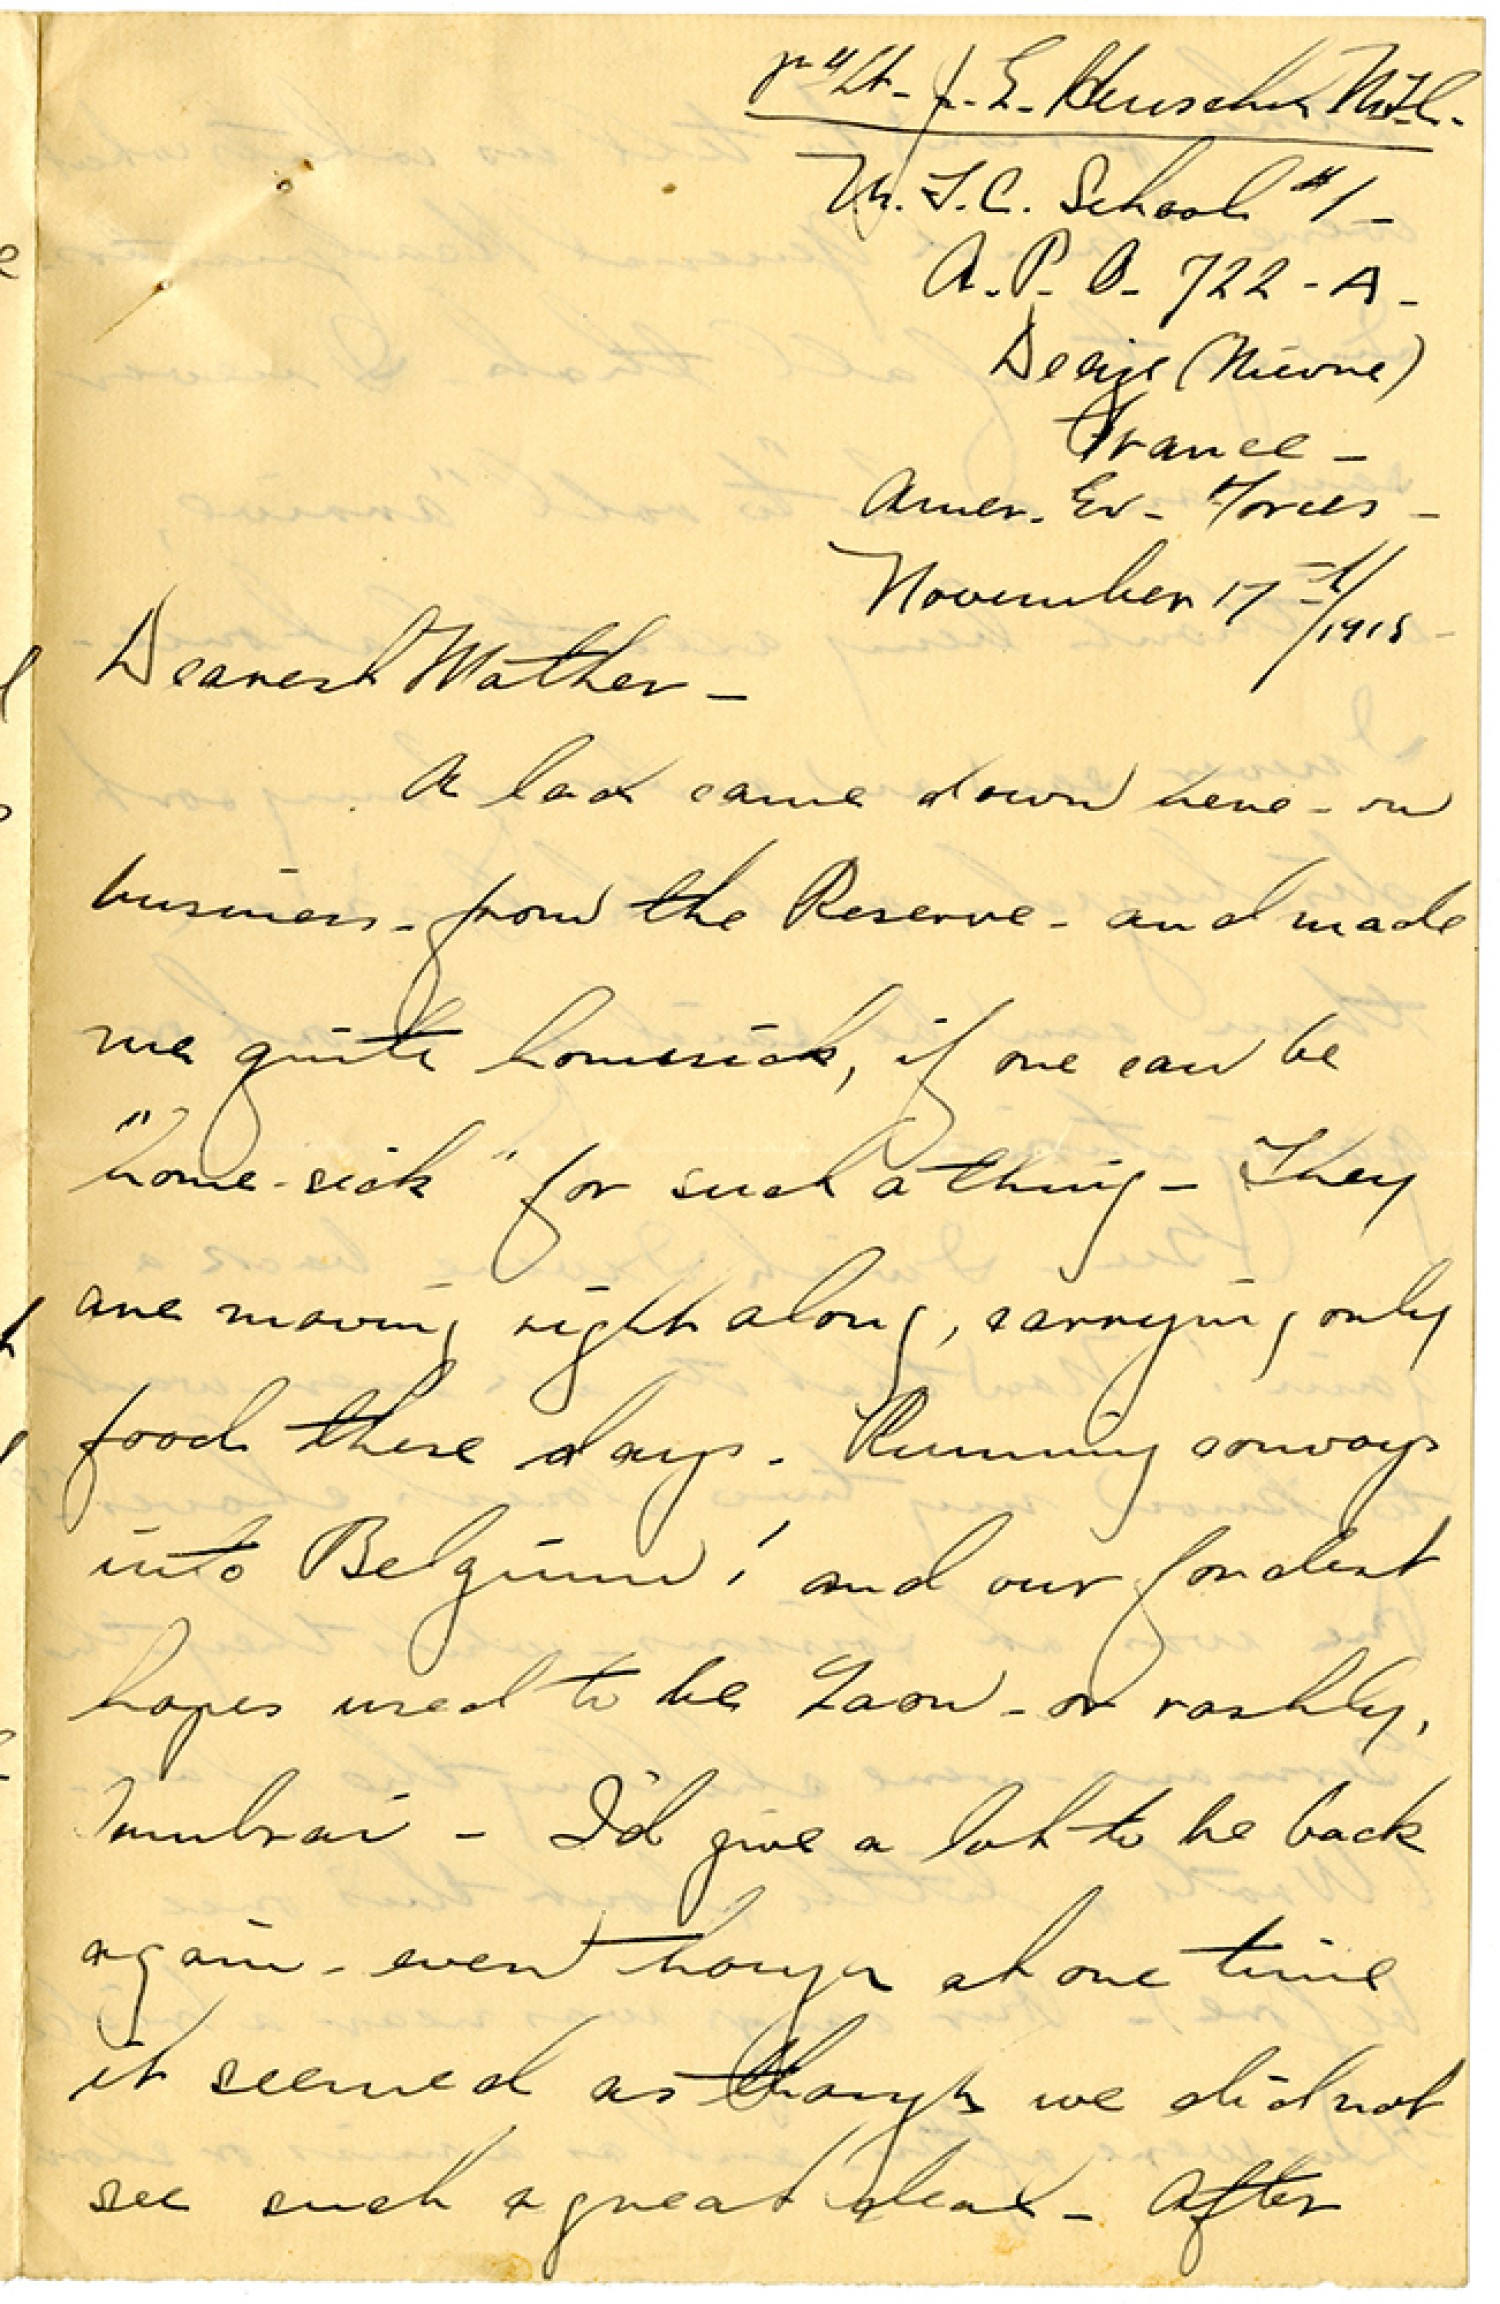 Lt. J. E. M.T.C.
M. T. C. School #1 -
A. P. O. 722 - A -
Decize (Nievre)
France -
Amer. Ex. Forces -
November 17th/1918 -
Dearest Mother -
A lad came down here - on
business - from the Reserve - and made
me quite homesick, if one can be
"home-sick" for such a thing - They
are moving right along, carrying only
food these days. Running convoys
into Belgium! and our fondest
hopes used to be Laon - or rashly,
Cambrai - I'd give a lot to be back
again - even though at one time
it seemed as though we did not
see such a great deal - After